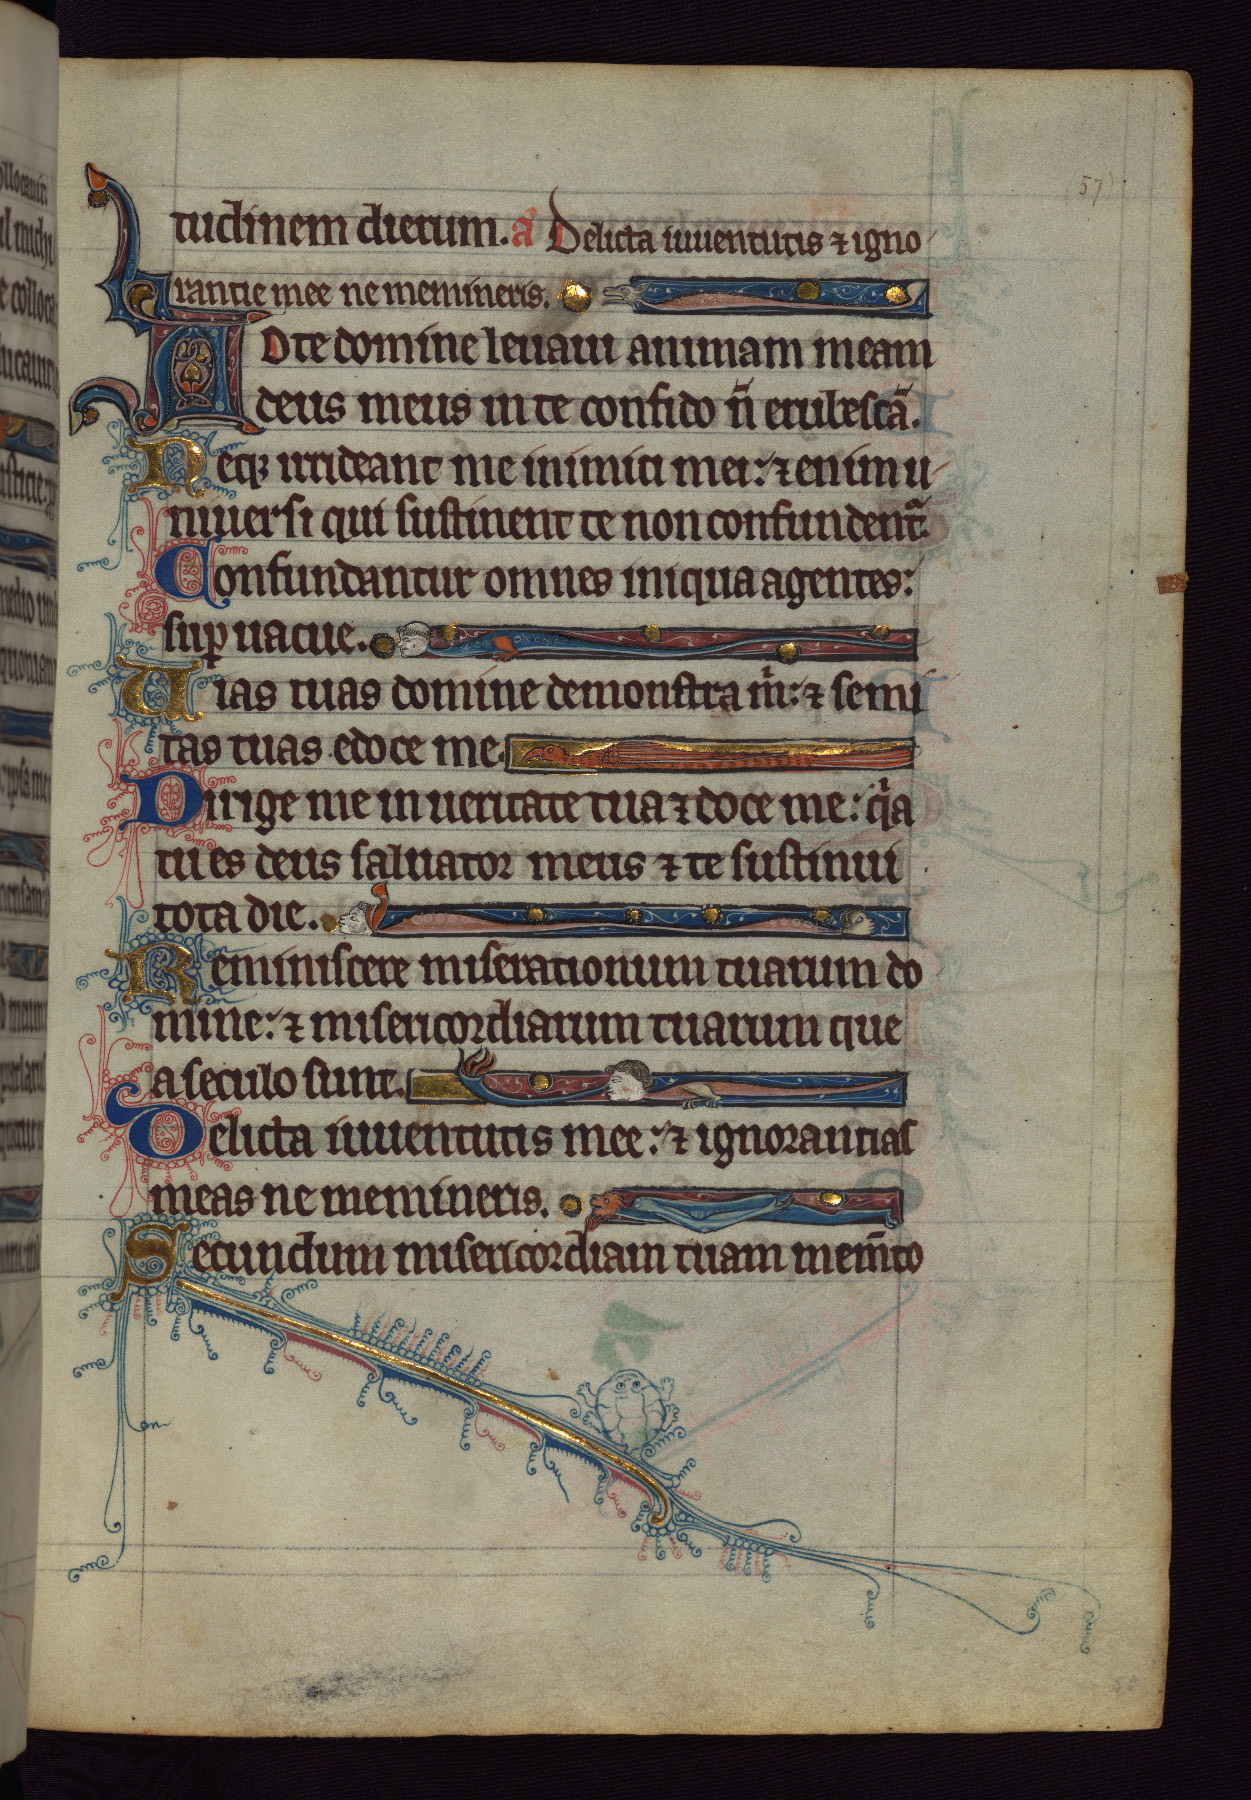 (57)
tudinem dierum. a Delicta iuuentutis ⁊ igno
rantie mee ne memineris.
AD te domine leuaui animam meam
deus meus in te confido n̄ erubescā.
Neqꝫ irrideant me inimici mei: ⁊enim u
niuersi qui sustinent te non confundent᷑.
Confundantur omnes iniqua agentes:
suꝑ uacue.
Uias tuas domine demonstra m̄: ⁊ semi
tas tuas edoce me.
Dirige me in ueritate tua ⁊ doce me: qͥa
tu es deus saluator meus ⁊ te sustinui
tota die.
Reminiscere miserationum tuarum do
mine: ⁊ misericordiarum tuarum que
a seculo sunt.
Delicta iuuentutis mee: ⁊ ignorantias
meas ne memineris.
Secundum misericordiam tuam mem̄to